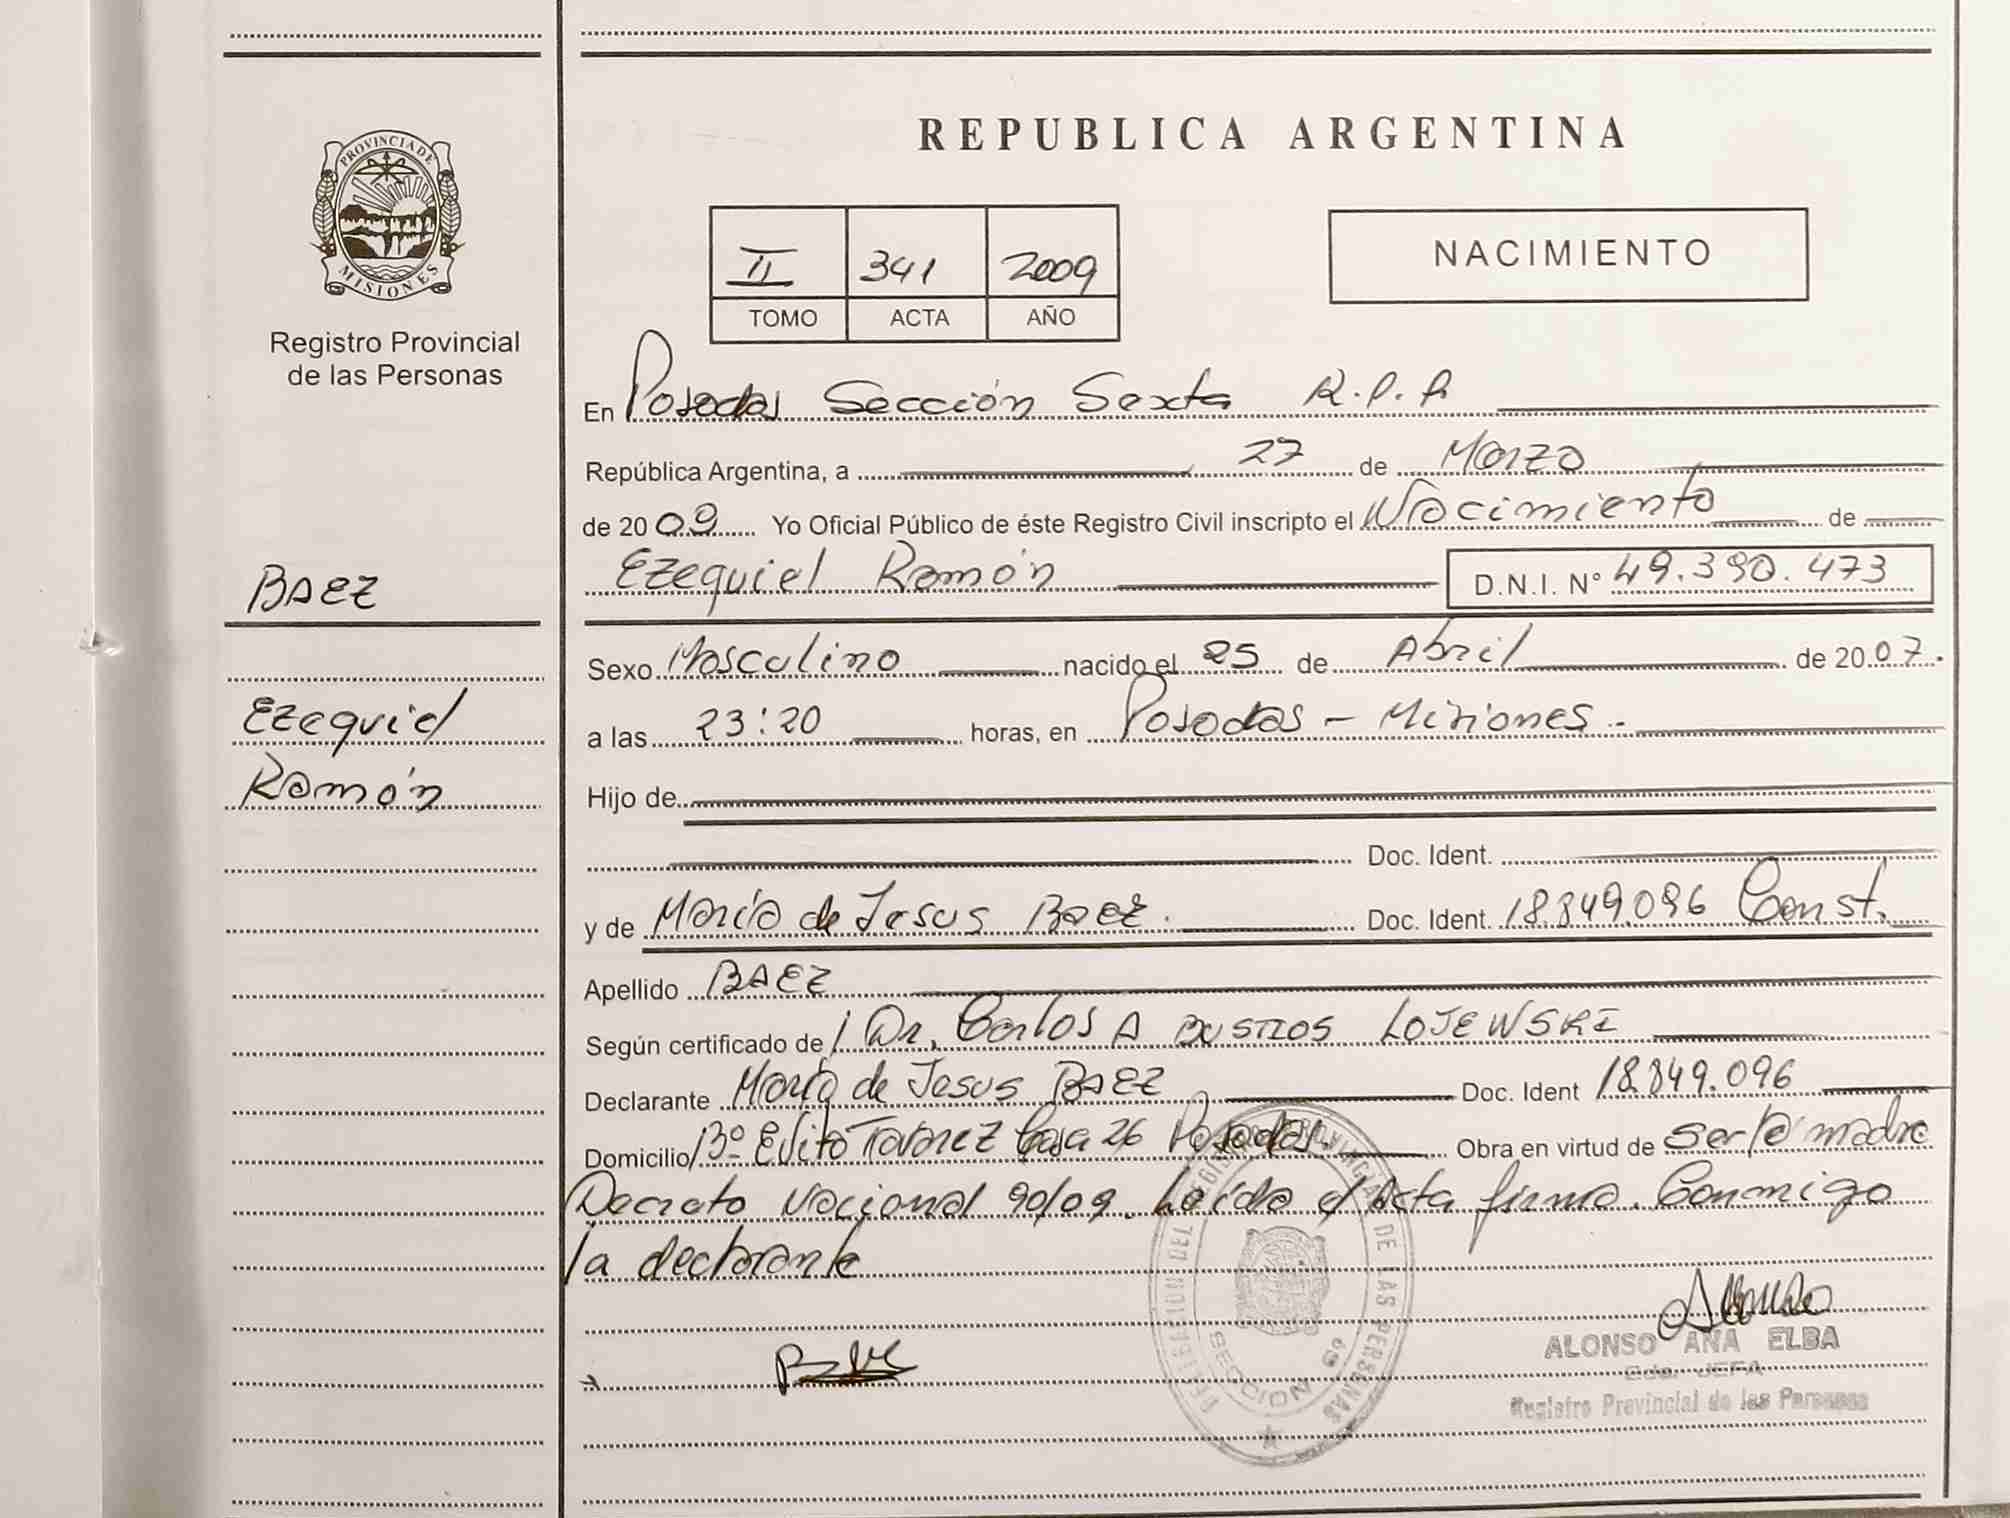 PROVINCIA DE
MISIONES
Registro Provincial
de las Personas
BAEZ
Ezequiel
Ramón
REPUBLICA ARGENTINA
II 341 2009
TOMO ACTA AÑO
NACIMIENTO
En Posadas Sección Sexta R.P.P
República Argentina, a 27 de Marzo
de 2009 Yo Oficial Público de éste Registro Civil inscripto el Nacimiento de
Ezequiel Ramón D.N.I. Nº 49.390.473
Sexo Masculino nacido el 25 de Abril de 2007.
a las 23:20 horas, en Posadas - Misiones.-
Hijo de
Doc. Ident.
y de María de Jesus Baez. Doc. Ident. 18.849.096 Const.
Apellido BAEZ
Según certificado de / Dr. Carlos A BUSTIOS LOJEWSKI
Declarante María de Jesus BAEZ Doc. Ident 18.849.096
Domicilio Bº Evita Casa 26 Posadas. Obra en virtud de ser la madre
Decreto Nacional 90/09. Leída el Acta firma. Conmigo
la declarante
DELEGACION DEL REGISTRO PROVINCIAL DE LAS PERSONAS
SECCION 6º
ALONSO ANA ELBA
JEFA
Registro Provincial de las Personas